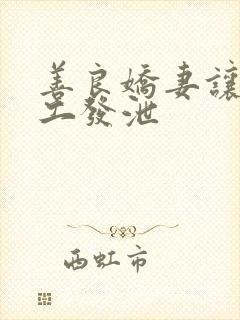 善良嬌妻讓
工發泄
西虹市